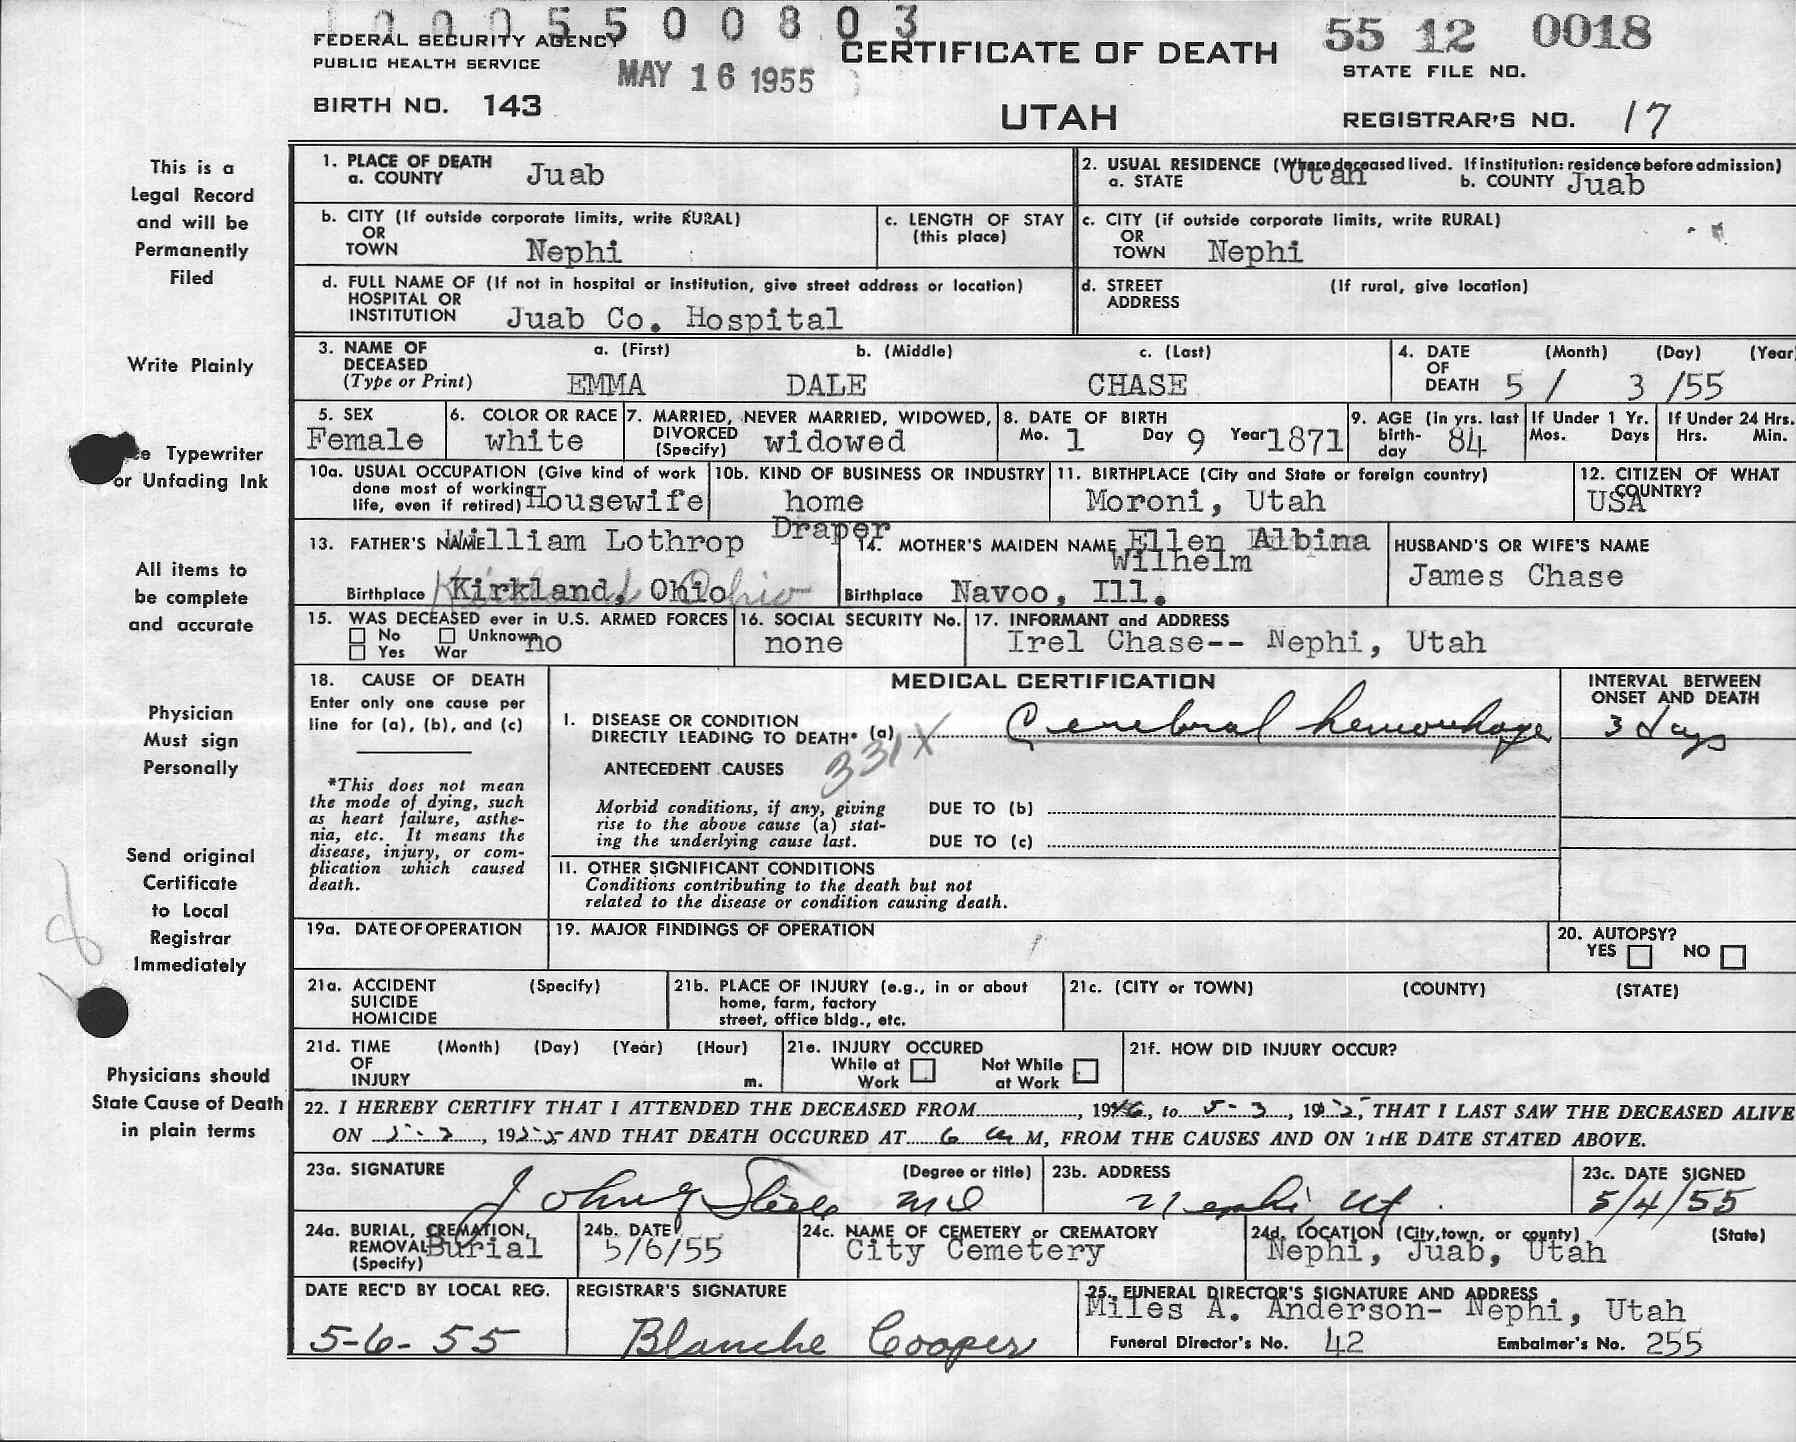 1000550080 3
FEDERAL SECURITY AGENCY
PUBLIC HEALTH SERVICE
MAY 16 1955
CERTIFICATE OF DEATH
55 12 0018
STATE FILE NO.
BIRTH NO. 143
UTAH
REGISTRAR'S NO. 17
This is a
Legal Record
and will be
Permanently
Filed
Write Plainly
Typewriter
or Unfading Ink
All items to
be complete
and accurate
Physician
Must sign
Personally
Send original
Certificate
to Local
Registrar
Immediately
Physicians should
State Cause of Death
in plain terms
1. PLACE OF DEATH
a. COUNTY Juab
2. USUAL RESIDENCE (Where deceased lived. If institution: residence before admission)
a. STATE Utah b. COUNTY Juab
b. CITY (If outside corporate limits, write RURAL)
OR
TOWN Nephi
c. LENGTH OF STAY
(this place)
c. CITY (if outside corporate limits, write RURAL)
OR
TOWN Nephi
d. FULL NAME OF (If not in hospital or institution, give street address or location)
HOSPITAL OR
INSTITUTION Juab Co. Hospital
d. STREET (If rural, give location)
ADDRESS
3. NAME OF DECEASED (Type or Print)
a. (First) b. (Middle) c. (Last)
EMMA DALE CHASE
4. DATE OF DEATH (Month) (Day) (Year
5 / 3 /55
5. SEX
Female
6. COLOR OR RACE
white
7. MARRIED, NEVER MARRIED, WIDOWED,
DIVORCED (Specify) widowed
8. DATE OF BIRTH
Mo. 1 Day 9 Year 1871
9. AGE (in yrs. last
birth-
day 84
If Under 1 Yr.
Mos. Days
If Under 24 Hrs.
Hrs. Min.
10a. USUAL OCCUPATION (Give kind of work
done most of working
life, even if retired) Housewife
10b. KIND OF BUSINESS OR INDUSTRY
home
11. BIRTHPLACE (City and State or foreign country)
Moroni, Utah
12. CITIZEN OF WHAT
COUNTRY?
USA
13. FATHER'S NAME William Lothrop Draper
Birthplace Kirkland, Ohio
14. MOTHER'S MAIDEN NAME Ellen Albina
Wilhelm
Birthplace Navoo, Ill.
HUSBAND'S OR WIFE'S NAME
James Chase
15. WAS DECEASED ever in U.S. ARMED FORCES
No Unknown no
Yes War
16. SOCIAL SECURITY No.
none
17. INFORMANT and ADDRESS
Irel Chase-- Nephi, Utah
18. CAUSE OF DEATH
Enter only one cause per
line for (a), (b), and (c)
*This does not mean
the mode of dying, such
as heart failure, asthe-
nia, etc. It means the
disease, injury, or com-
plication which caused
death.
MEDICAL CERTIFICATION
INTERVAL BETWEEN
ONSET AND DEATH
I. DISEASE OR CONDITION
DIRECTLY LEADING TO DEATH* (a) Cerebral hemorrhage 3 days
331X
ANTECEDENT CAUSES
Morbid conditions, if any, giving
rise to the above cause (a) stat-
ing the underlying cause last.
DUE TO (b)
DUE TO (c)
II. OTHER SIGNIFICANT CONDITIONS
Conditions contributing to the death but not
related to the disease or condition causing death.
19a. DATE OF OPERATION
19. MAJOR FINDINGS OF OPERATION
20. AUTOPSY?
YES NO
21a. ACCIDENT (Specify)
SUICIDE
HOMICIDE
21b. PLACE OF INJURY (e.g., in or about
home, farm, factory
street, office bldg., etc.
21c. (CITY or TOWN) (COUNTY) (STATE)
21d. TIME (Month) (Day) (Year) (Hour)
OF
INJURY m.
21e. INJURY OCCURED
While at Work Not While at Work
21f. HOW DID INJURY OCCUR?
22. I HEREBY CERTIFY THAT I ATTENDED THE DECEASED FROM , 1946, to 5-3, 1955, THAT I LAST SAW THE DECEASED ALIVE
ON 5-2, 1955 AND THAT DEATH OCCURED AT 6 a M, FROM THE CAUSES AND ON THE DATE STATED ABOVE.
23a. SIGNATURE (Degree or title)
John Steele MD
23b. ADDRESS
Nephi, Ut.
23c. DATE SIGNED
5/4/55
24a. BURIAL, CREMATION,
REMOVAL Burial
(Specify)
24b. DATE
5/6/55
24c. NAME OF CEMETERY or CREMATORY
City Cemetery
24d. LOCATION (City, town, or county) (State)
Nephi, Juab, Utah
DATE REC'D BY LOCAL REG.
5-6-55
REGISTRAR'S SIGNATURE
Blanche Cooper
25. FUNERAL DIRECTOR'S SIGNATURE AND ADDRESS
Miles A. Anderson- Nephi, Utah
Funeral Director's No. 42 Embalmer's No. 255